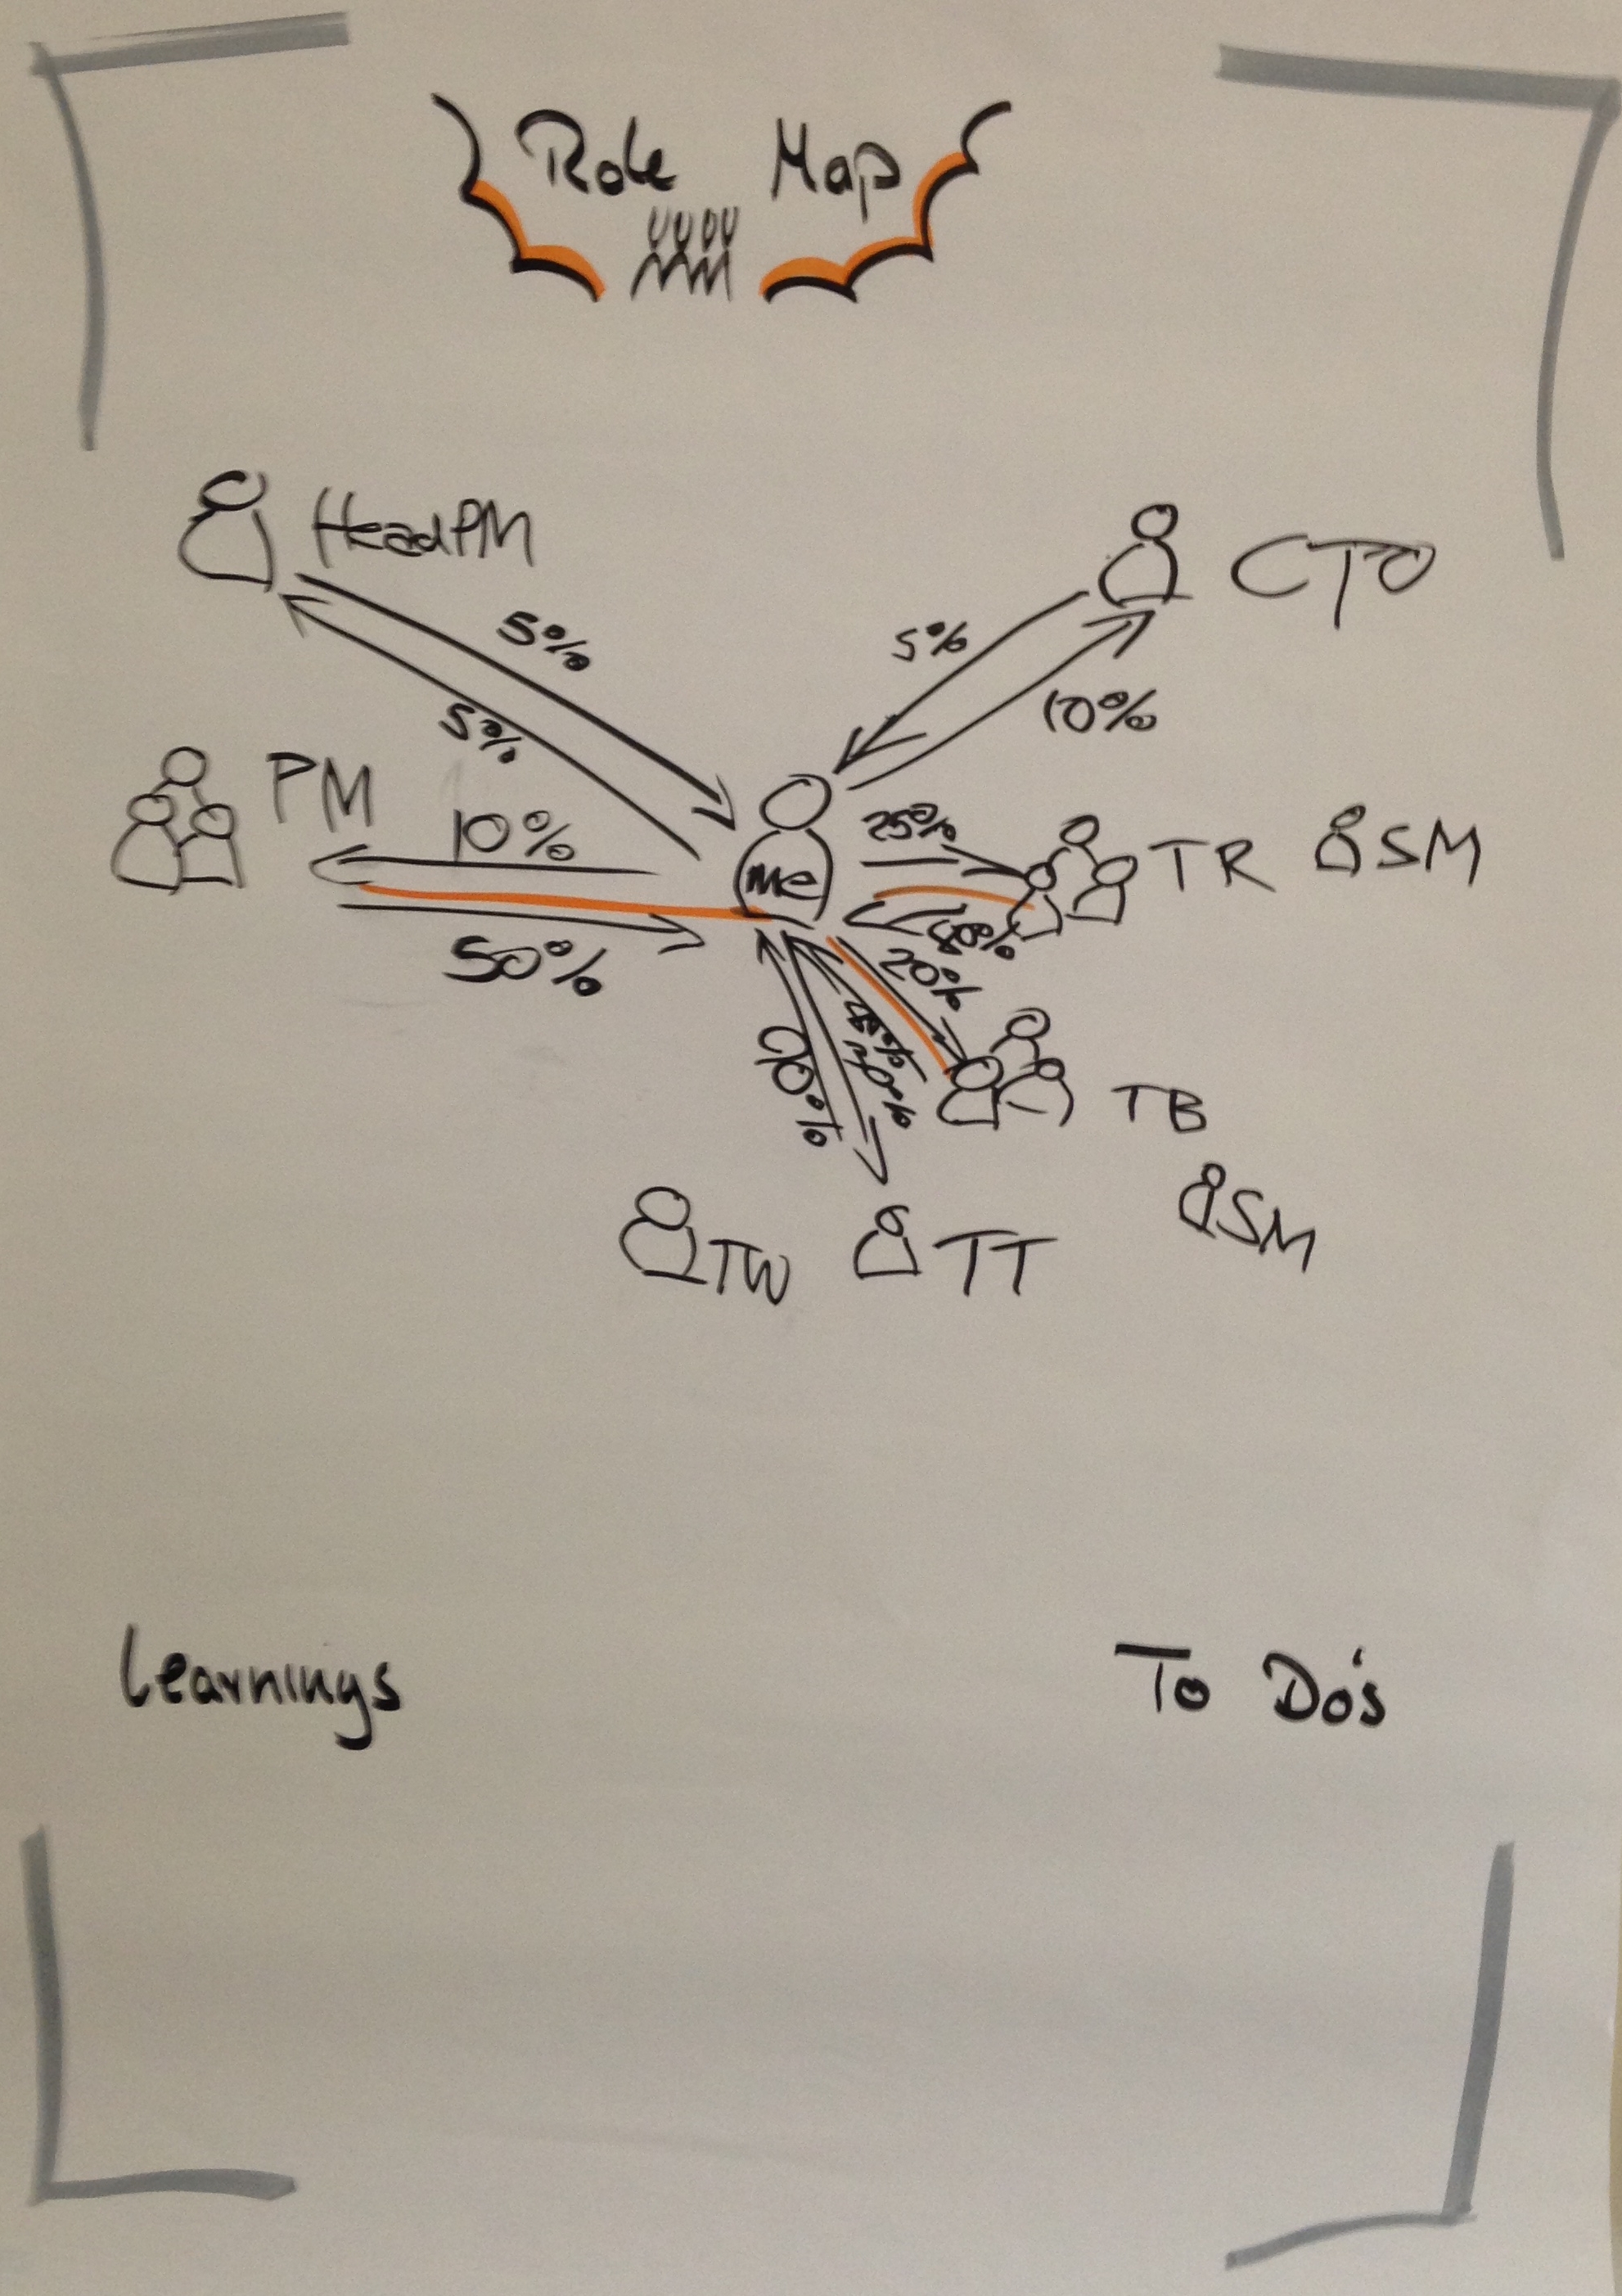 Role Map
HeadPM
CTO
5%
5%
5%
10%
PM
10%
me
25%
TR
SM
50%
20%
90%
TB
SM
TW
TT
Learnings
To Do's